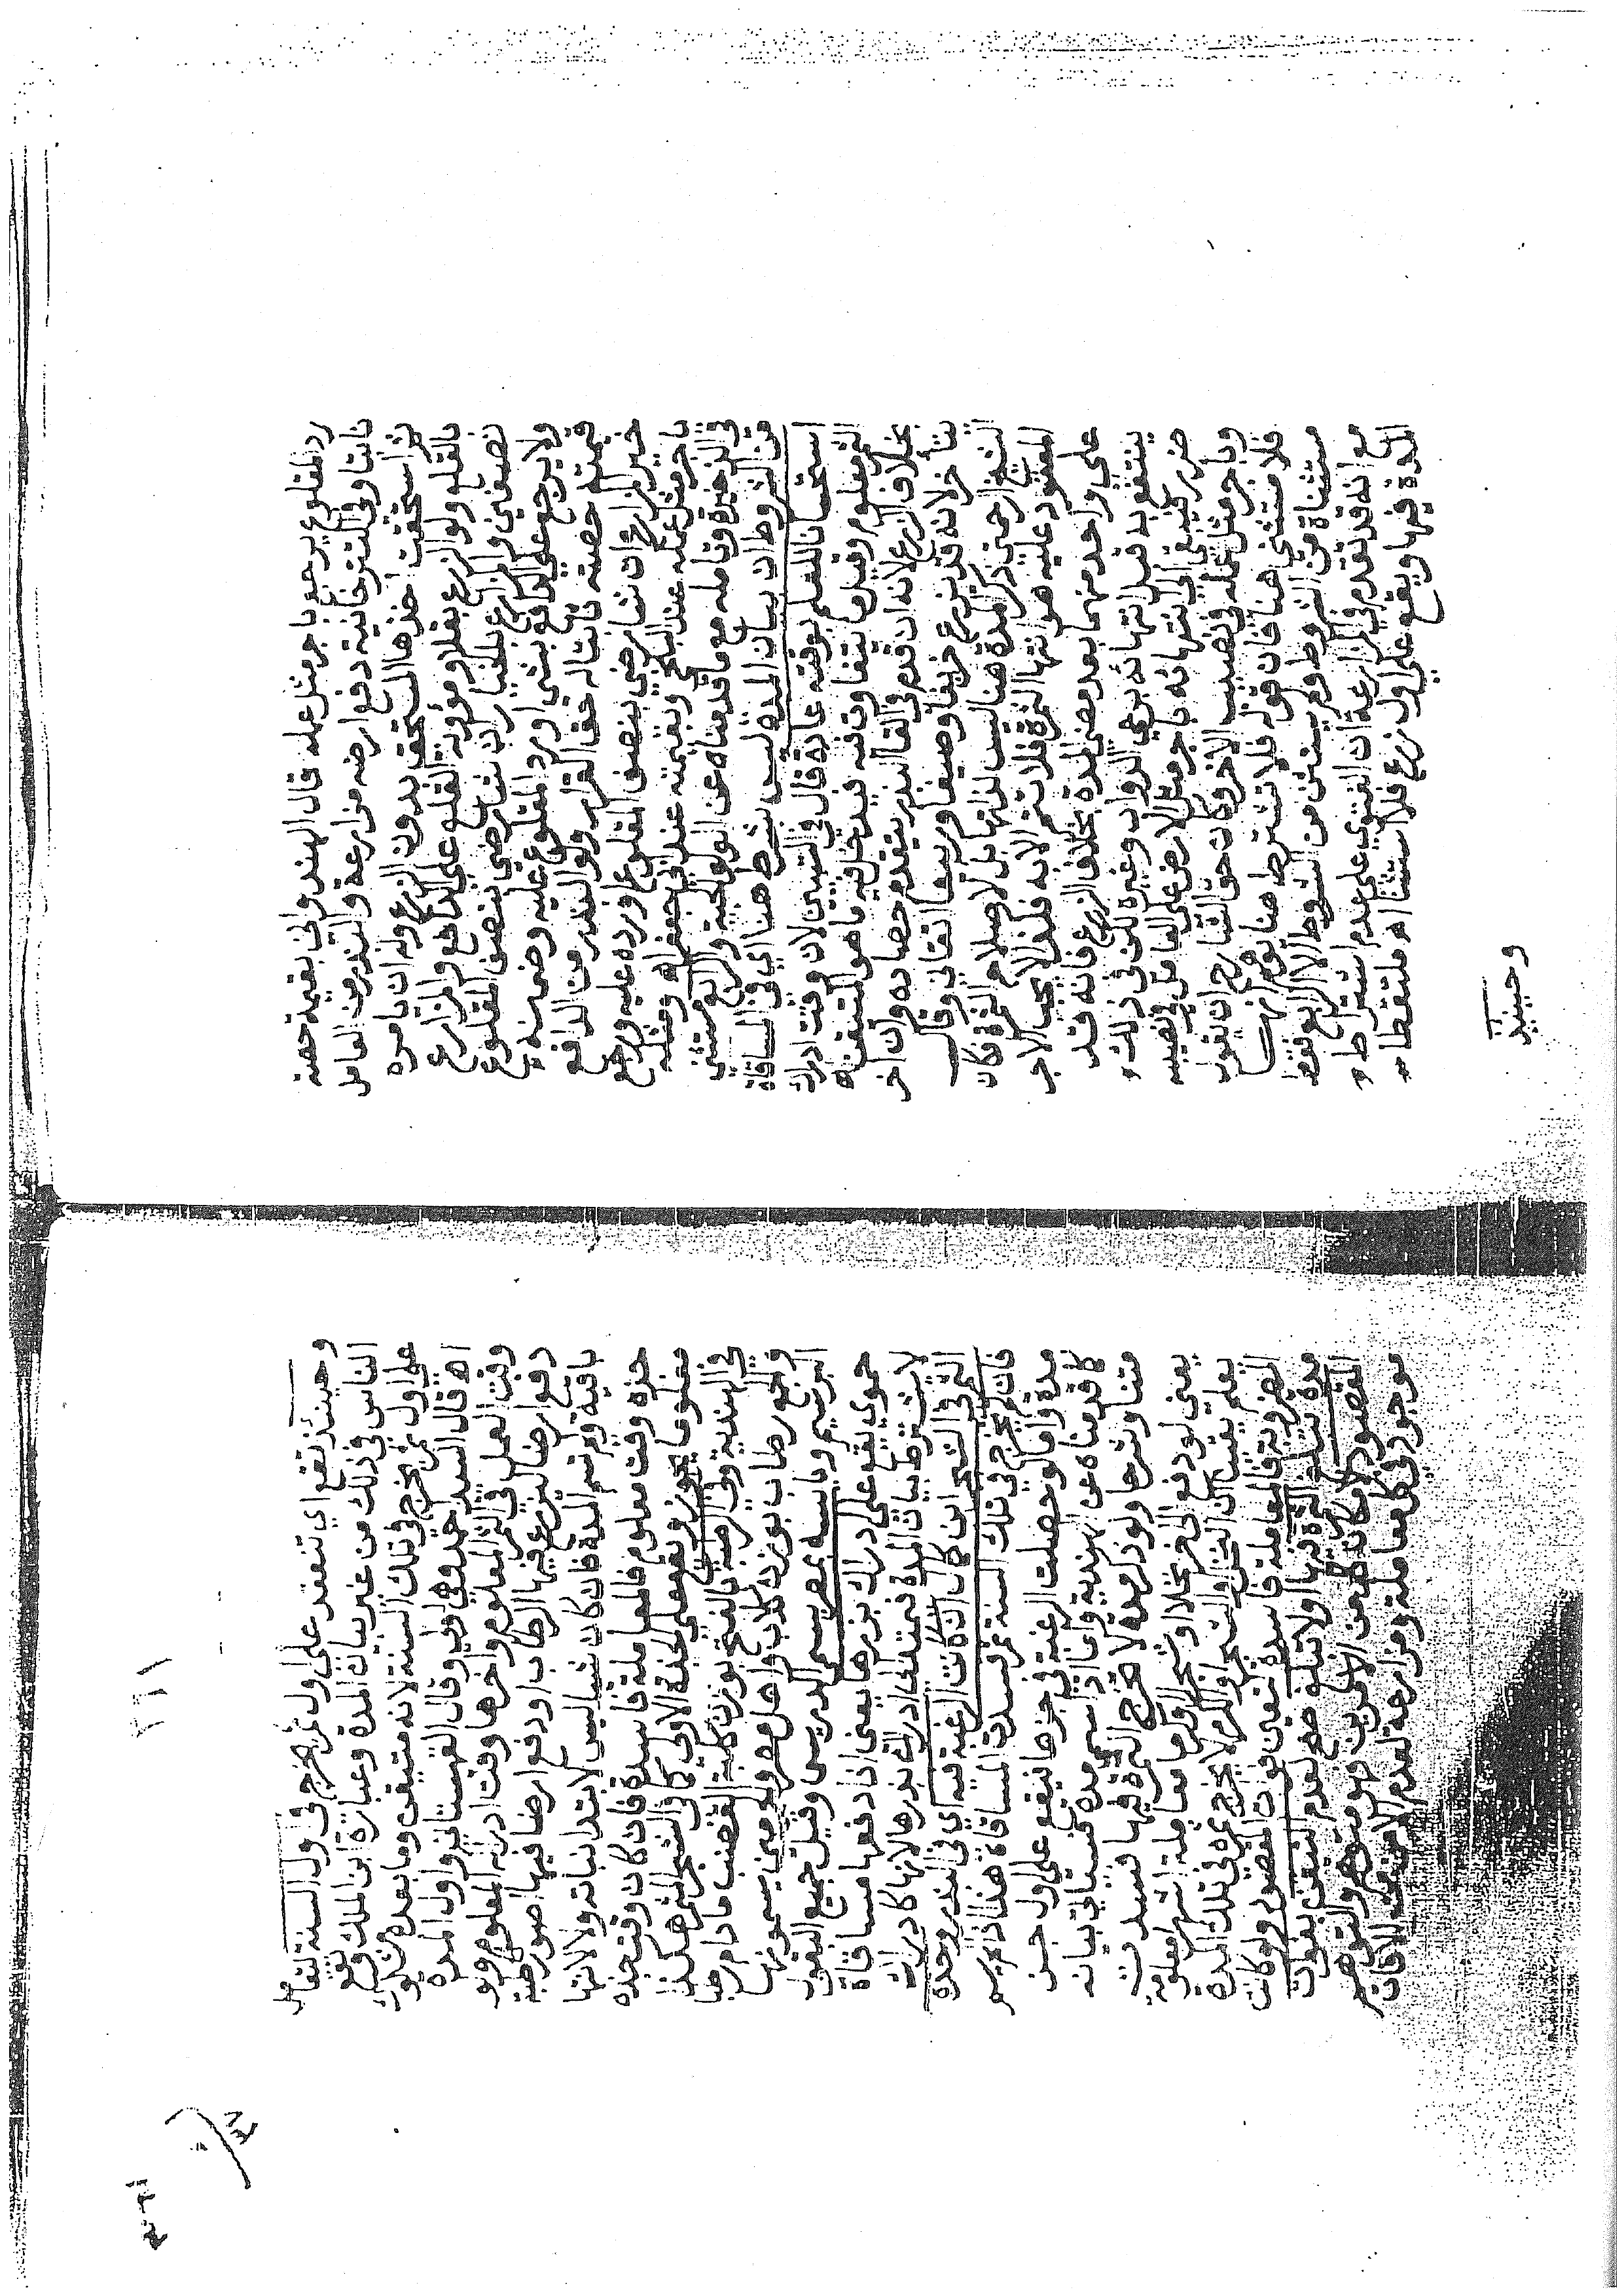 رد المقلوع يرجع باجر مثل عمله قال الهندواني بقيمة حصته
نابتا وفي التترخانية دفع ارضه مزارعة والبذر من العامل
ثم استحقت اخذها المستحق بدون الزرع وله ان يامره
بالقلع ولو الزرع بقلا ومؤونة القلع على الدافع والمزارع
نصفين والمزارع بالخيار ان شا رضي بنصف المقلوع
ولا يرجع على الدافع بشي او رد المقلوع عليه وضمنه
قيمة حصته نابتا له حق القرار ولو البذر من الدافع
خير المزارع ان شا رضي بنصف المقلوع او رده عليه ورجع
باجر مثل عمله عند البلخي وبقيمته عند ابي جعفر اه ومثله
في الذخيرة وتامله مع ما قدمناه عن الولوالجية والرابع مستثنى
من الشروط ان بيان المدة ليس بشرط هنا اي في المساقاة
استحسانا للعلم بوقته عادة قال في التبيين لان وقت ادراك
الثمر معلوم وقيل ما يتفاوت فيه فيدخل فيه ما هو المتيقن اه
بخلاف الزرع لانه ان قدم في القا البذر يتقدم حصاده وان اخر
يتاخر لانه قد يزرع خريفا وصيفا وربيعا اتقاني وقال
الشيخ الرحمتي ذكر المدة هنا ليس لذاتها بل لاصلاح الثمرة فكان
المعقود عليه هو انتها الثمرة فلا تتم الا به فلذا لا يجب الاجر
على واحد منهما بعد مضي المدة بخلاف الزرع فانه قد
ينتفع به قبل انتهائه برعي الدواب وغيره لكن في ذلك
ضرر فيبقى الى انتهائه باجر مثل الارض على العامل في نصيبه
وباجر مثل عمله في نصيب الاخر وكان حق الشارح ان يقول
فلا مستثنى هنا فان قوله فلا تشترط هنا يوهم انها
مستثناة من الشروط ولم يستثن من الشروط الا الرابع فقط
مع انه قد تقدم في المزارعة ان الفتوى على عدم اشتراط
المدة فيها ويقع على اول زرع فلا استثنا اه ملتقطا
وحينئذ
وحينئذ تقع اي تنعقد على اول ثمر يخرج في اول السنة لتعامل
الناس في ذلك من غير بيان المدة وعبارة ابن الملك وقع
على اول ثمر يخرج في تلك السنة لانه متيقن وما بعده مشكوك
اه قال السيد احمد وهي اولى وقال القهستاني واول المدة
وقت العمل في الثمر المعلوم واخرها وقت ادراكه المعلوم ولو
دفع ارضا ليزرع فيها الرطاب او دفع ارضا فيها اصول رطبة
باقية ولم تسم المدة فان كان شيا ليس لابتدا نباته ولا لانتها
جذه وقت معلوم فالمعاملة فاسدة فان كان وقت جذه
معلوما يجوز ويقع على الجذة الاولى كما في الشجر المثمر هكذا
في الهندية وفي الرطبة بالفتح بوزن كلبة القضب ما دام رطبا
والجمع رطاب بوزن كلاب واهل مصر واليوم يسمونها
البرسيم ويابسه بمصر يسمى الدريس وقيل جميع البقول
حموي يقع على ادراك بزرها يعني اذا دفعها مساقاة
لا يشترط بيان المدة فتمتد الى ادراك بذرها لانها كادراك
الثمر في الشجر ابن كمال ان كانت الرغبة فيه اي في البذر وحده
فان لم يخرج في تلك السنة ثمر فسدت المساقاة هذا اذا لم يسم
مدة واما لو حصلت الرغبة في جزها فيقع على اول جز
كما قدمناه عن الهندية واما اذا سمى مدة فسياتي بيانه
متنا وشرحا ولو ذكر مدة لا تخرج الثمرة فيها فسدت
يعني لو دفع الى اخر نخلا او شجرا او كرما معاملة اشهر معلومة
يعلم يقينا ان النخل والشجر والكرم لا يخرج ثمره في تلك المدة
المضروبة فالمعاملة فاسدة لتعين فوات المقصود ولو كانت
مدة تبلغ الثمرة فيها او لا تبلغ صح لعدم التيقن بفوات
المقصود لامكان كل من الامرين فهو متوهم والتوهم
موجود في كل معاملة ومزارعة لعدم الامن من الافات